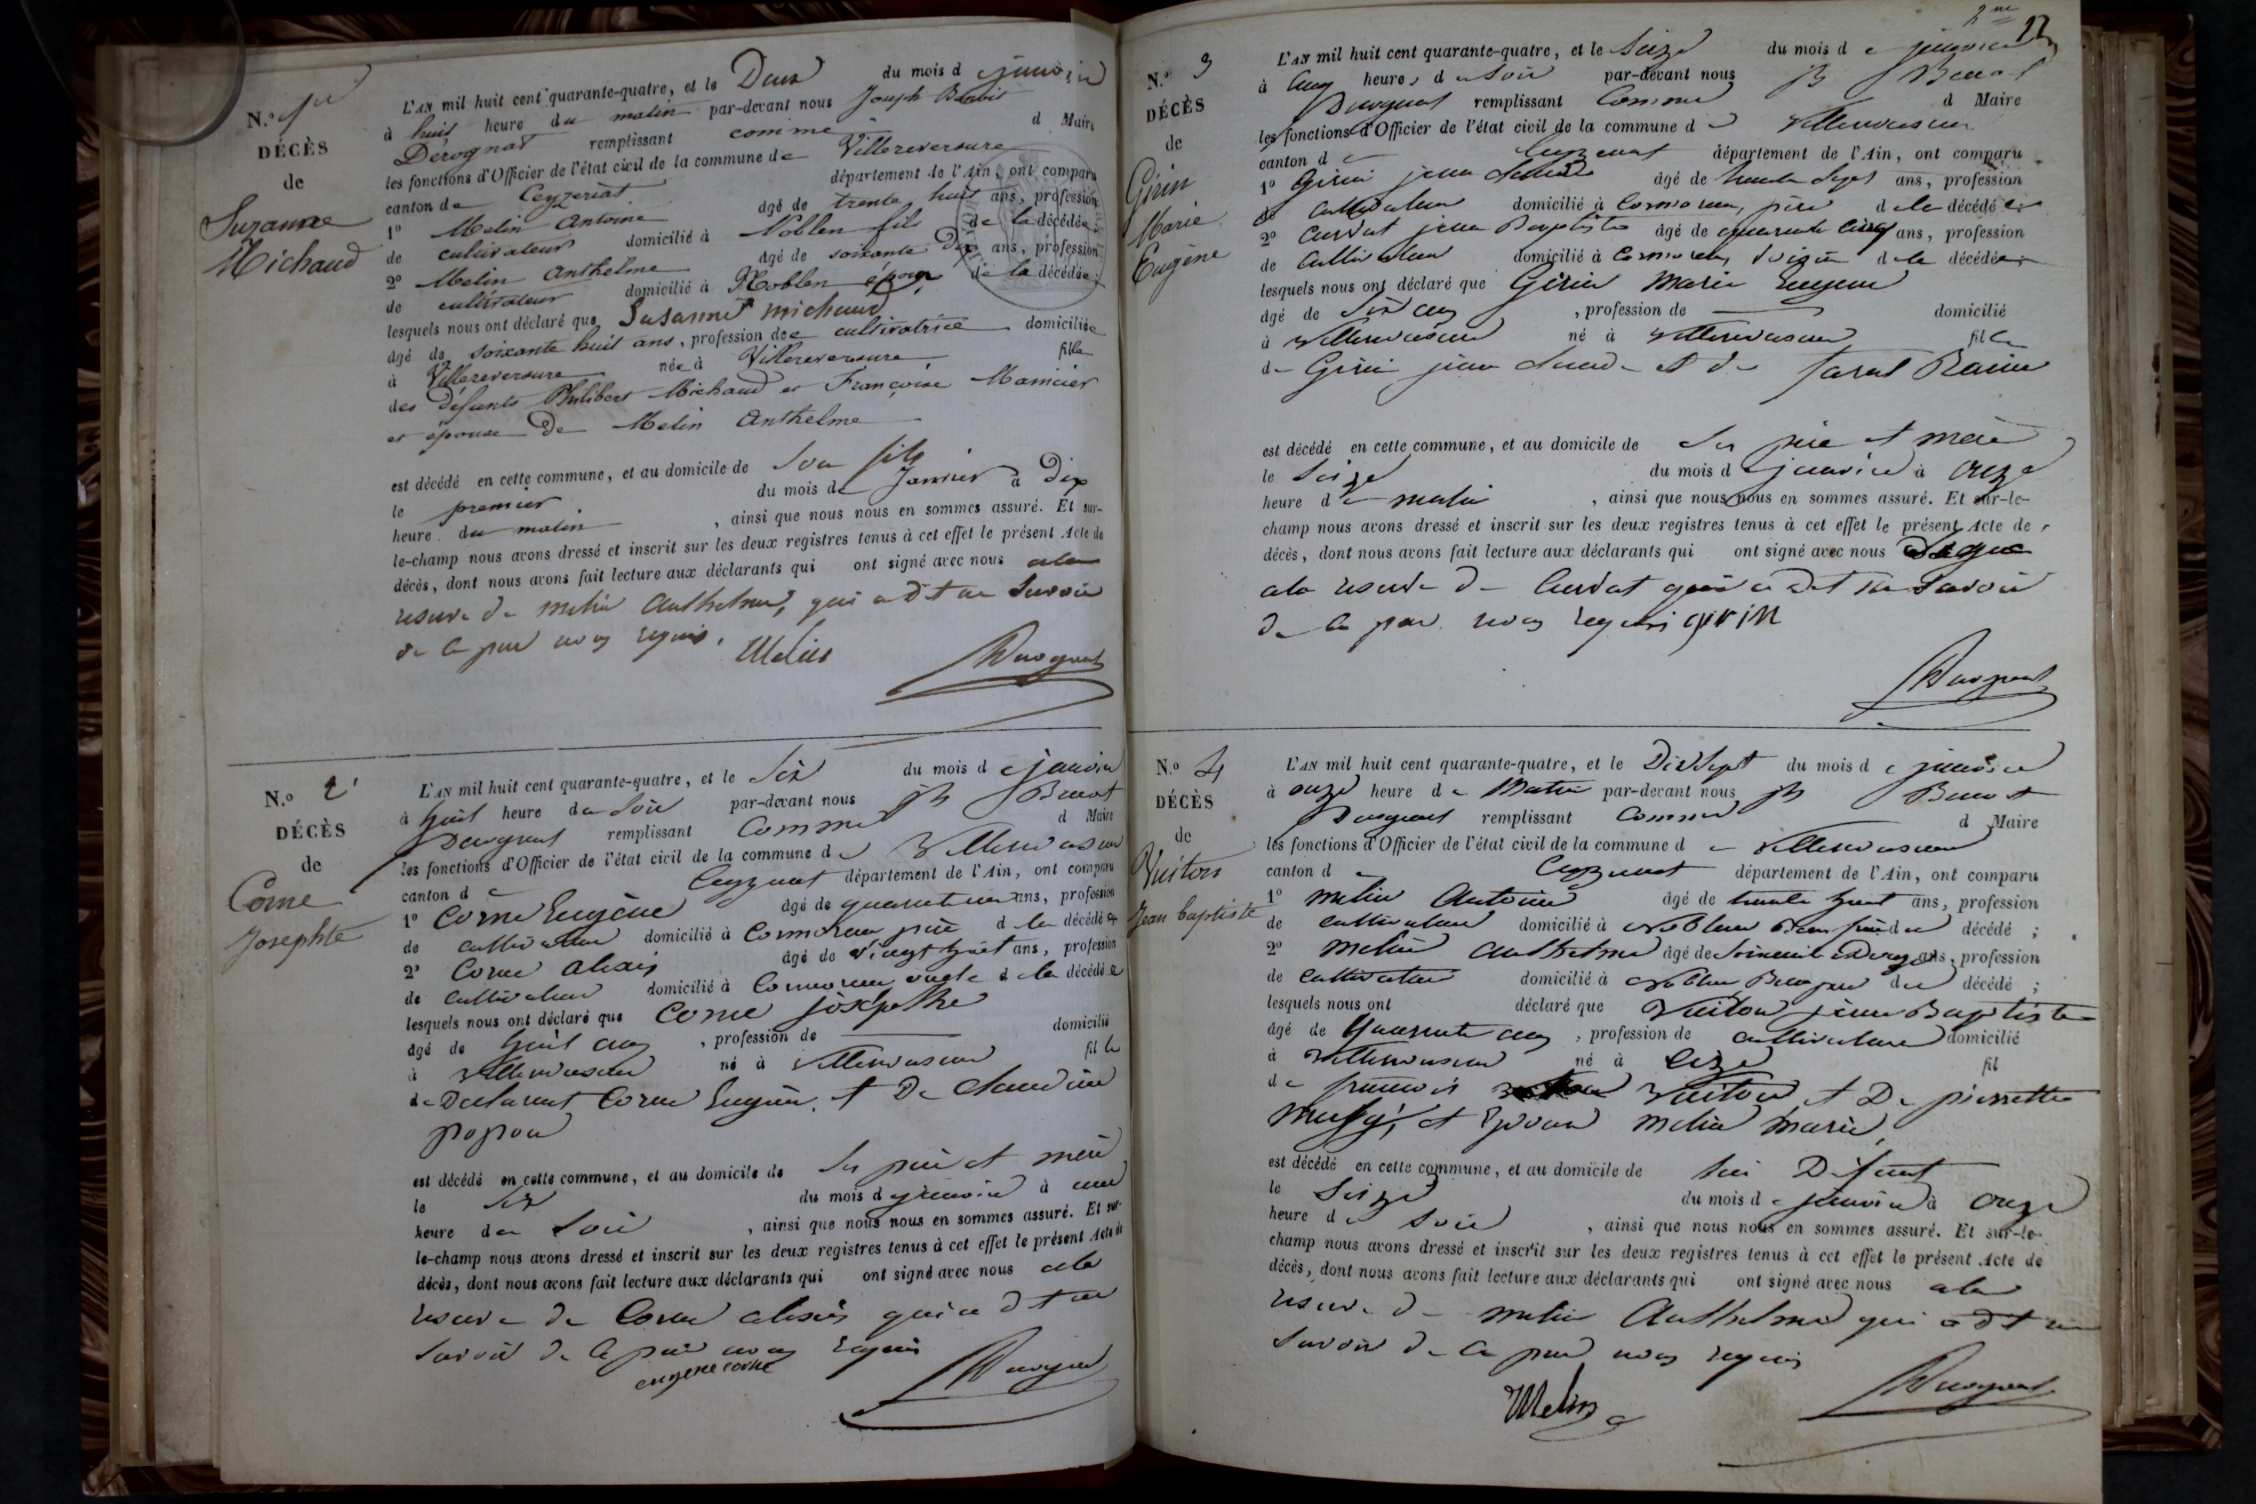 N.º 1er
DÉCÈS
de
Suzanne
Michaud
L'AN mil huit cent quarante-quatre, et le Deux du mois de janvier
à huit heure du matin par-devant nous Joseph Benoit
Dérognat remplissant comme d Maire
les fonctions d'Officier de l'état civil de la commune de Villereversure
canton de Ceyzeriat département de l'Ain, ont comparu
1º Melin Antoine âgé de trente huit ans, profession
de cultivateur domicilié à Noblen fils de la décédée
2º Melin Anthelme âgé de soixante Dix ans, profession
de cultivateur domicilié à Noblen époux de la décédée;
lesquels nous ont déclaré que Susanne michaud
âgé de soixante huit ans, profession de cultivatrice domiciliée
à Villereversure née à Villereversure fille
des défunts Philibert Michaud et Françoise Manicier
et épouse De Melin Anthelme
est décédé en cette commune, et au domicile de son fils
le premier du mois de Janvier à Dix
heure du matin, ainsi que nous nous en sommes assuré. Et sur-
le-champ nous avons dressé et inscrit sur les deux registres tenus à cet effet le présent Acte de
décès, dont nous avons fait lecture aux déclarants qui ont signé avec nous ala
reserve de melin Anthelme, qui a dit ne savoir
de ce par nous requis.
Melin Derognat
N.º 2
DÉCÈS
de
Corne
Josephte
L'AN mil huit cent quarante-quatre, et le Six du mois de janvier
à huit heure du soir par-devant nous Jh Benoit
Derognat remplissant Comme d Maire
les fonctions d'Officier de l'état civil de la commune de Villereversure
canton de Ceyzeriat département de l'Ain, ont comparu
1º Corne Eugène âgé de quarante ans, profession
de cultivateur domicilié à Cormoreu père de la décédée
2º Corne Alexis âgé de vingt huit ans, profession
de cultivateur domicilié à Cormoreu oncle de la décédée
lesquels nous ont déclaré que Corne josephte
âgé de huit ans, profession de domicilié
à Villereversure né à Villereversure fille
de Déclarant Corne Eugène et De Claudine
popon
est décédé en cette commune, et au domicile de ses père et mère
le six du mois de janvier à une
heure du soir, ainsi que nous nous en sommes assuré. Et sur-
le-champ nous avons dressé et inscrit sur les deux registres tenus à cet effet le présent Acte de
décès, dont nous avons fait lecture aux déclarants qui ont signé avec nous ala
reserve de Corne alexis qui a dit ne
savoir de ce par nous requis
eugene corne Derognat
2me
N.º 3
DÉCÈS
de
Girin
Marie
Eugène
L'AN mil huit cent quarante-quatre, et le Seize du mois de janvier
à cinq heures du soir par-devant nous Jh Benoit
Derognat remplissant Comme d Maire
les fonctions d'Officier de l'état civil de la commune de Villereversure
canton de Ceyzeriat département de l'Ain, ont comparu
1º Girin jean claude âgé de trente sept ans, profession
de cultivateur domicilié à Cormoreu, père de la décédée
2º Curvat jean Baptiste âgé de quarante cinq ans, profession
de cultivateur domicilié à Cormoreu, voisin de la décédée
lesquels nous ont déclaré que Girin Marie Eugene
âgé de six ans, profession de domicilié
à Villereversure né à Villereversure fille
de Girin jean claude et de
est décédé en cette commune, et au domicile de ses père et mère
le Seize du mois de janvier à onze
heure du matin, ainsi que nous nous en sommes assuré. Et sur-le-
champ nous avons dressé et inscrit sur les deux registres tenus à cet effet le présent Acte de
décès, dont nous avons fait lecture aux déclarants qui ont signé avec nous
ala reserve de Curvat qui a dit ne savoir
de ce par nous requis girin
Derognat
N.º 4
DÉCÈS
de
Vuiton
Jean baptiste
L'AN mil huit cent quarante-quatre, et le Dix sept du mois de janvier
à onze heure du Matin par-devant nous Jh Benoit
Derognat remplissant Comme d Maire
les fonctions d'Officier de l'état civil de la commune de Villereversure
canton d Ceyzeriat département de l'Ain, ont comparu
1º melin Antoine âgé de trente huit ans, profession
de cultivateur domicilié à Noblen Beau frère du décédé;
2º melin Anthelme âgé de ans, profession
de cultivateur domicilié à Noblen Beau père du décédé;
lesquels nous ont déclaré que Vuiton jean Baptiste
âgé de quarante ans, profession de cultivateur domicilié
à Villereversure né à Cize fil
de francois Vuiton et De pierrette
et Epoux melin marie,
est décédé en cette commune, et au domicile de lui Défunt
le Seize du mois de janvier à onze
heure du soir, ainsi que nous nous en sommes assuré. Et sur-le-
champ nous avons dressé et inscrit sur les deux registres tenus à cet effet le présent Acte de
décès, dont nous avons fait lecture aux déclarants qui ont signé avec nous ala
reserve de melin Anthelme qui a dit ne
savoir de ce par nous requis
Melin Derognat